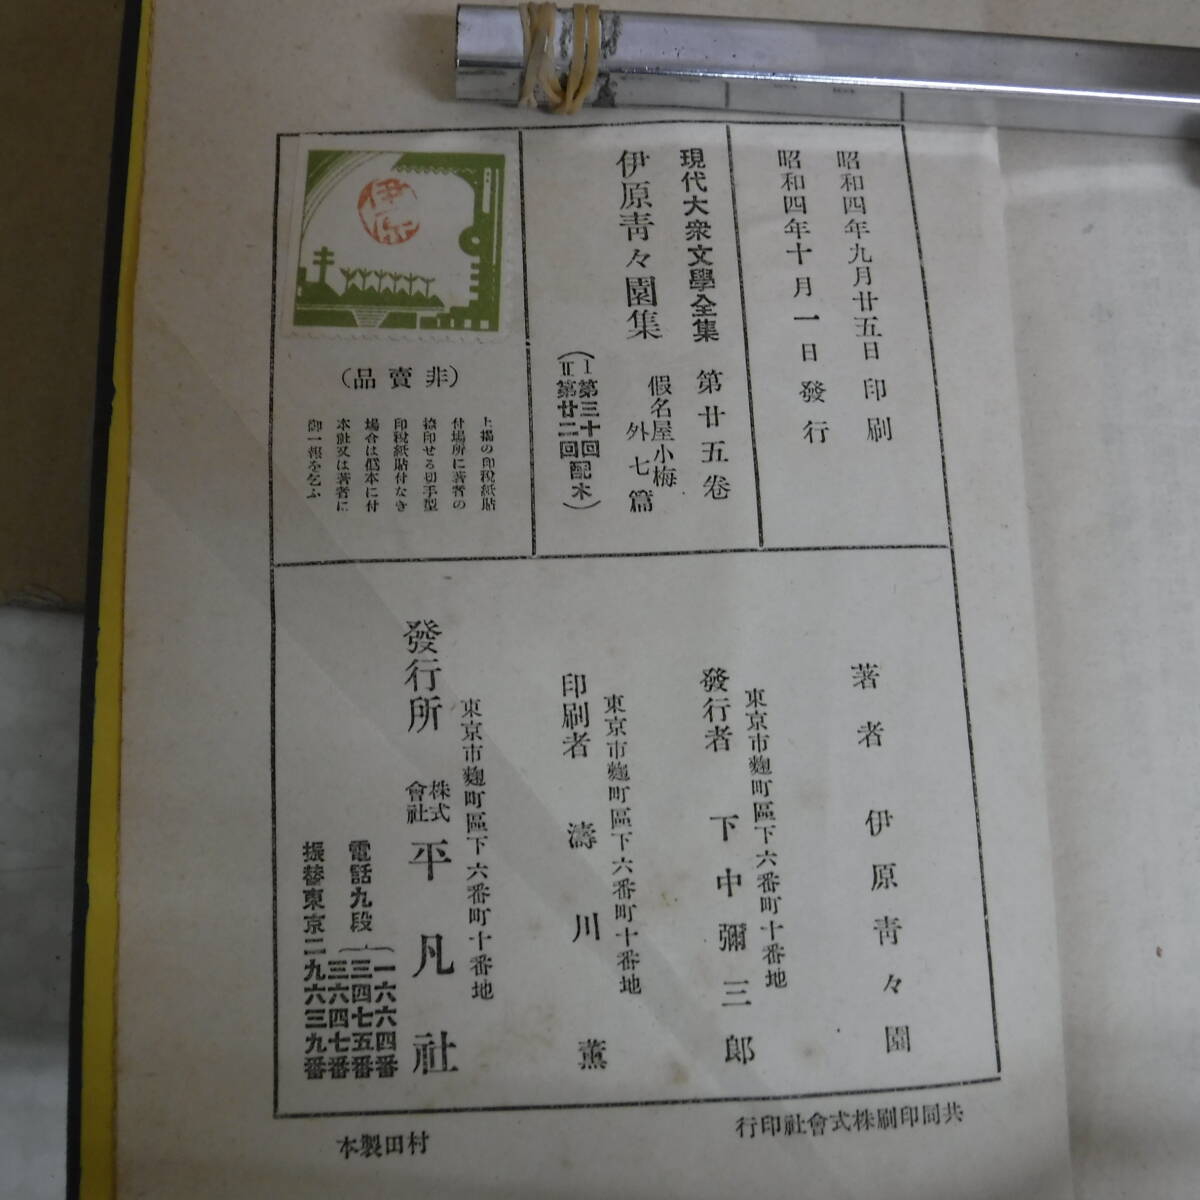 昭和四年九月廿五日印刷
昭和四年十月一日發行
現代大衆文學全集 第廿五卷
伊原靑々園集 假名屋小梅 外七篇
(Ⅰ第三十回配本
Ⅱ第廿二回)
伊原
(非賣品)
上揭の印稅紙貼
付場所に著者の
捺印せる切手型
印稅紙貼付なき
場合は低本に付
本社又は著者に
御一報を乞ふ
著者 伊原靑々園
東京市麴町區下六番町十番地
發行者 下中彌三郎
東京市麴町區下六番町十番地
印刷者 濤川薰
東京市麴町區下六番町十番地
發行所 株式會社 平凡社
電話九段 一六六四番
三四七五番
三六四七番
振替東京二九六三九番
共同印刷株式會社印行
村田製本